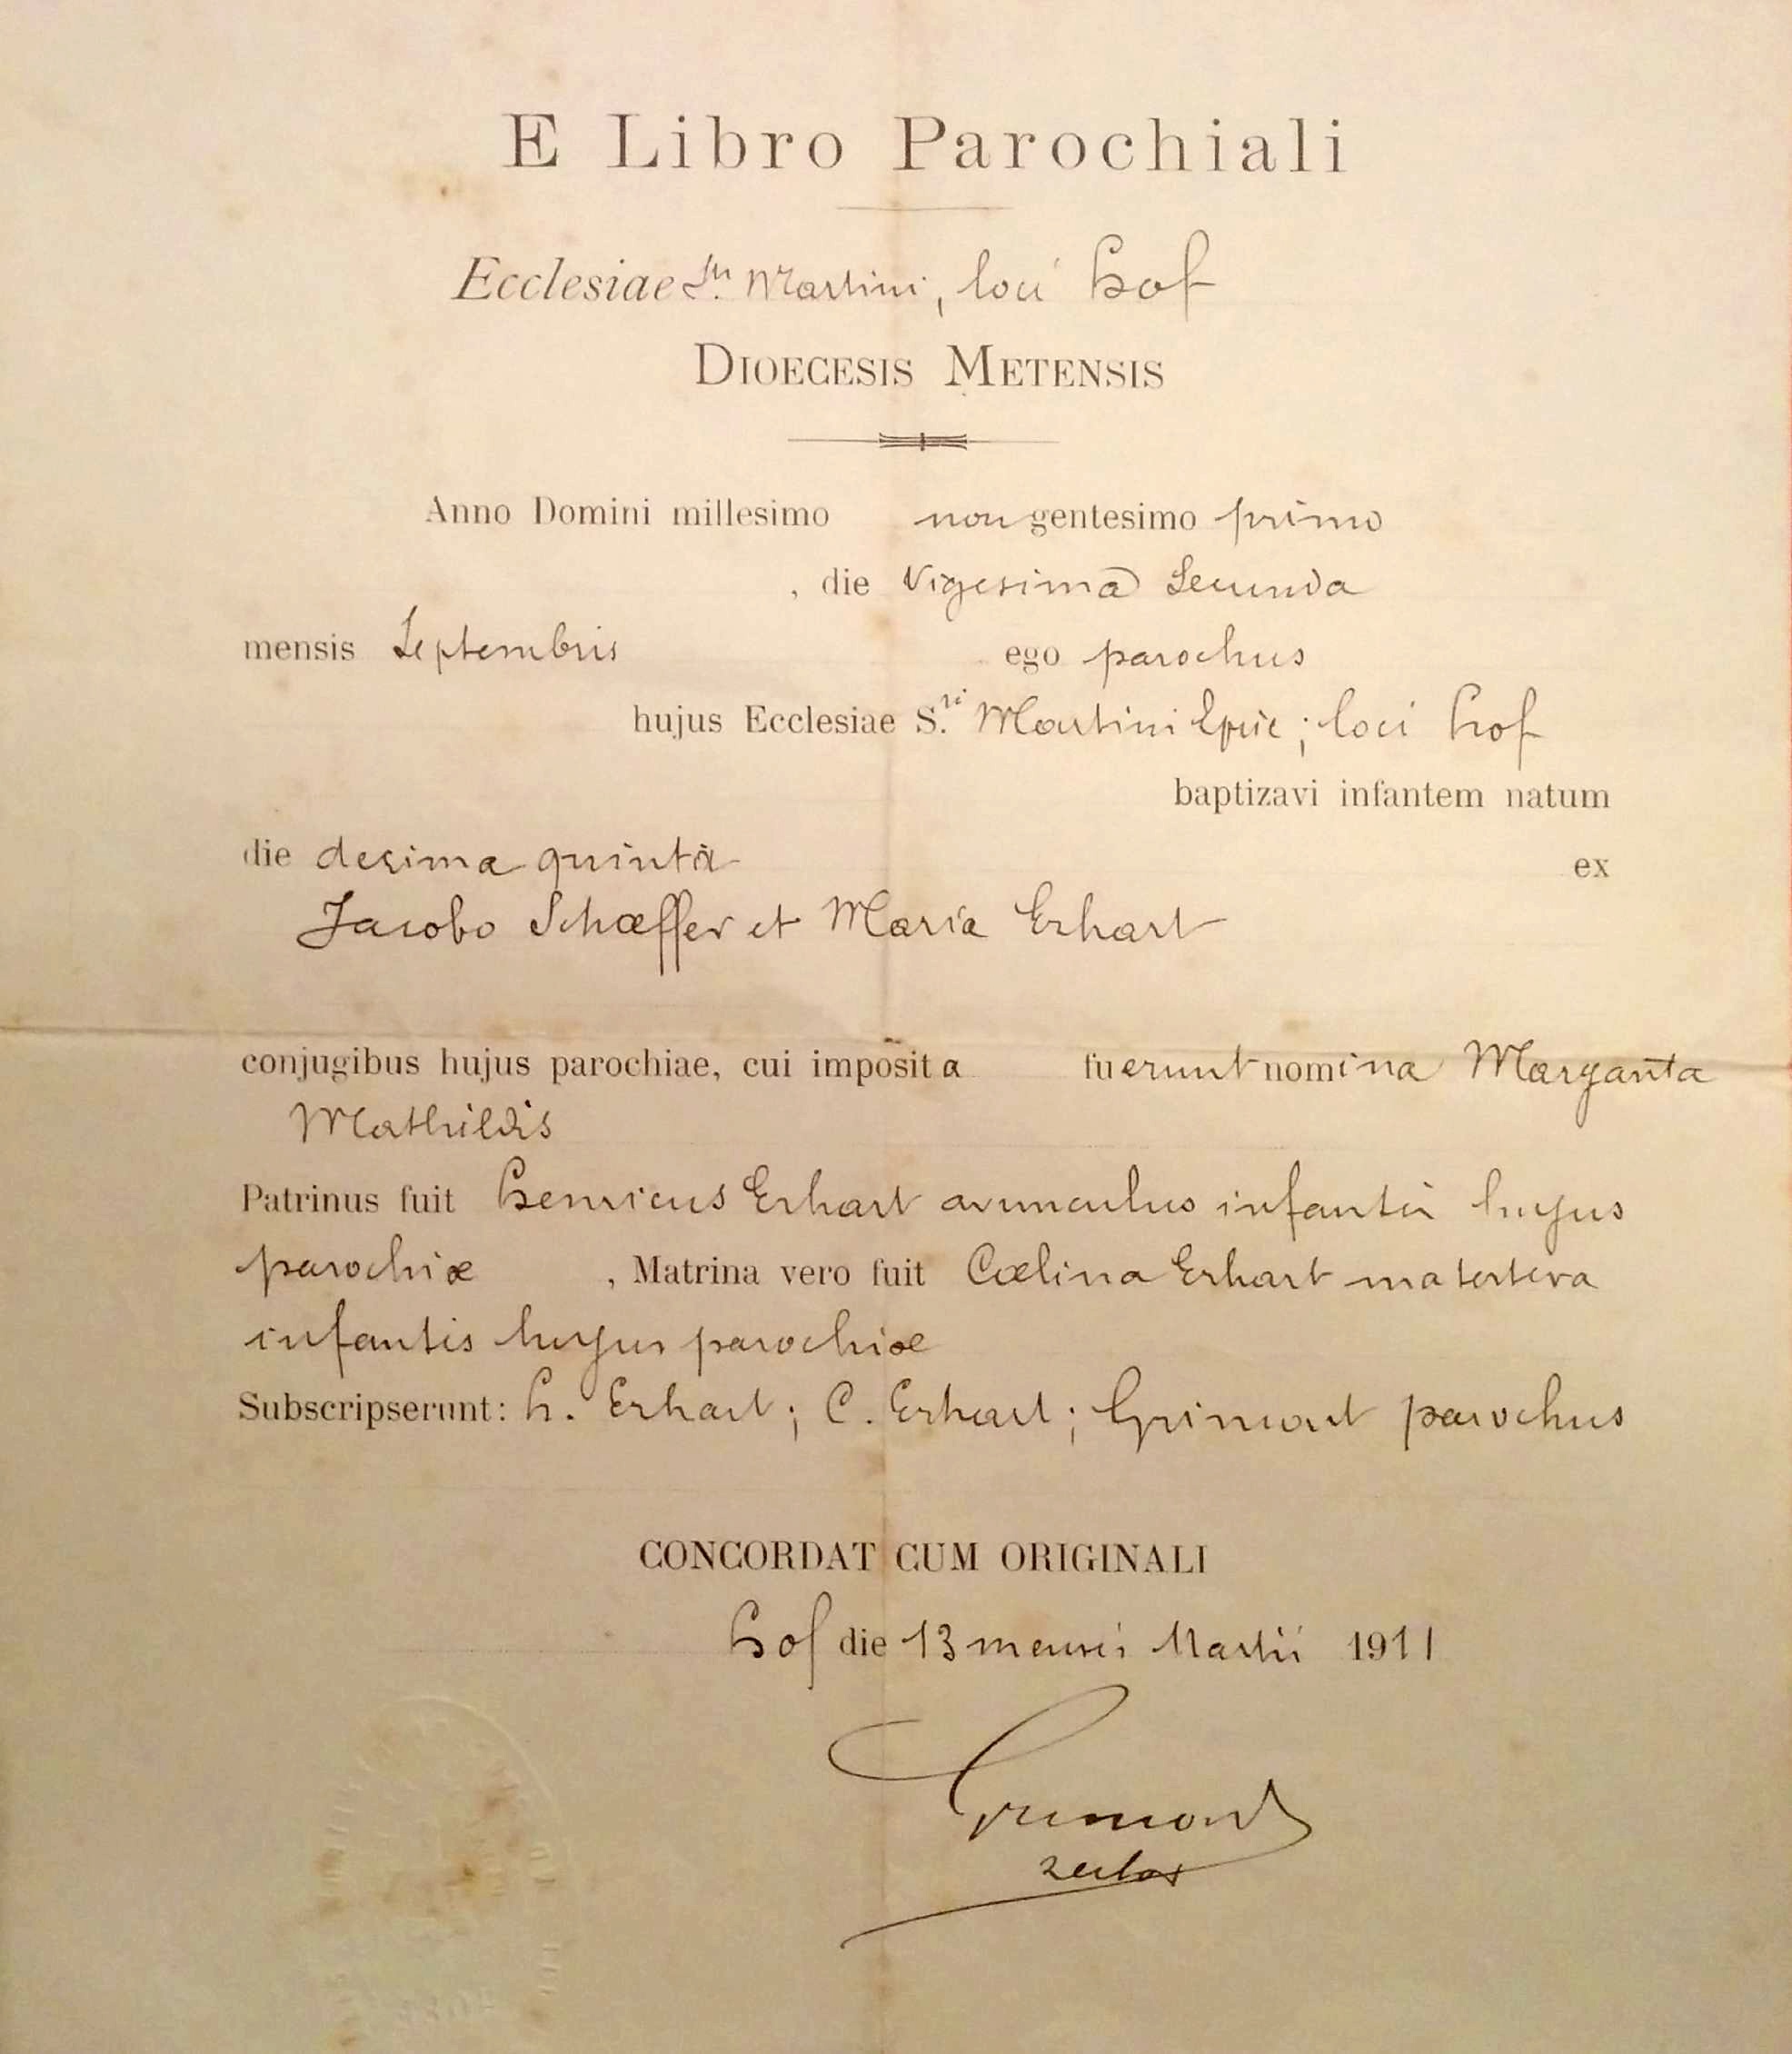 E Libro Parochiali
Ecclesiae Sti Martini, loci Hof
DIOECESIS METENSIS
Anno Domini millesimo nongentesimo primo
, die vigesima Secunda
mensis Septembris ego parochus
hujus Ecclesiae S.ti Martini Epic; loci Hof
baptizavi infantem natum
die decima quinta ex
Jacobo Schæffer et Maria Erhart
conjugibus hujus parochiae, cui imposita fuerunt nomina Margarita
Mathildis
Patrinus fuit Henricus Erhart avunculus infantis hujus
parochiæ , Matrina vero fuit Cœlina Erhart matertera
infantis hujus parochiæ
Subscripserunt: H. Erhart; C. Erhart; Grimont parochus
CONCORDAT CUM ORIGINALI
Hof die 13 mensis Martii 1911
Grimont
rector